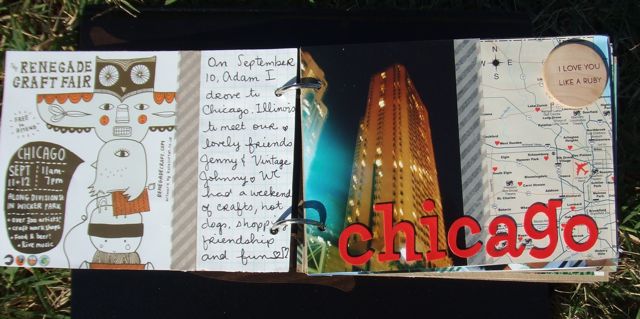 The RENEGADE
CRAFT FAIR
FREE
to
ATTEND
CHICAGO
SEPT 11am-
11-12 7pm
ALONG DIVISION ST
IN WICKER PARK
• over 300 artists!
• craft workshops
• Food & beer!
• Live music
RENEGADECRAFT.COM
On September
10, Adam I
drove to
Chicago, Illinois
to meet our
lovely friends
Jenny & Vintage
Johnny. We
had a weekend
of crafts, hot
dogs, shopping
friendship
and fun
chicago
N
W E
S
I LOVE YOU
LIKE A RUBY